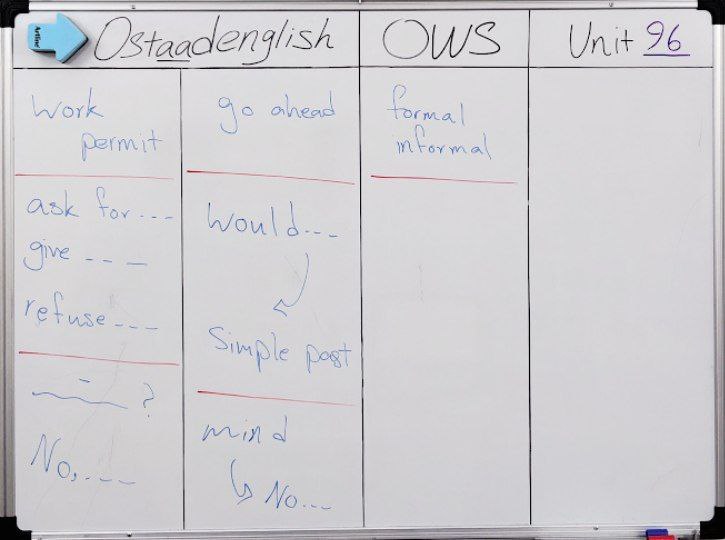 Artline
Ostaadenglish
OWS
Unit 96
Work
permit
ask for---
give ---
refuse---
?
No,---
go ahead
Would---
Simple past
mind
No---
formal
informal